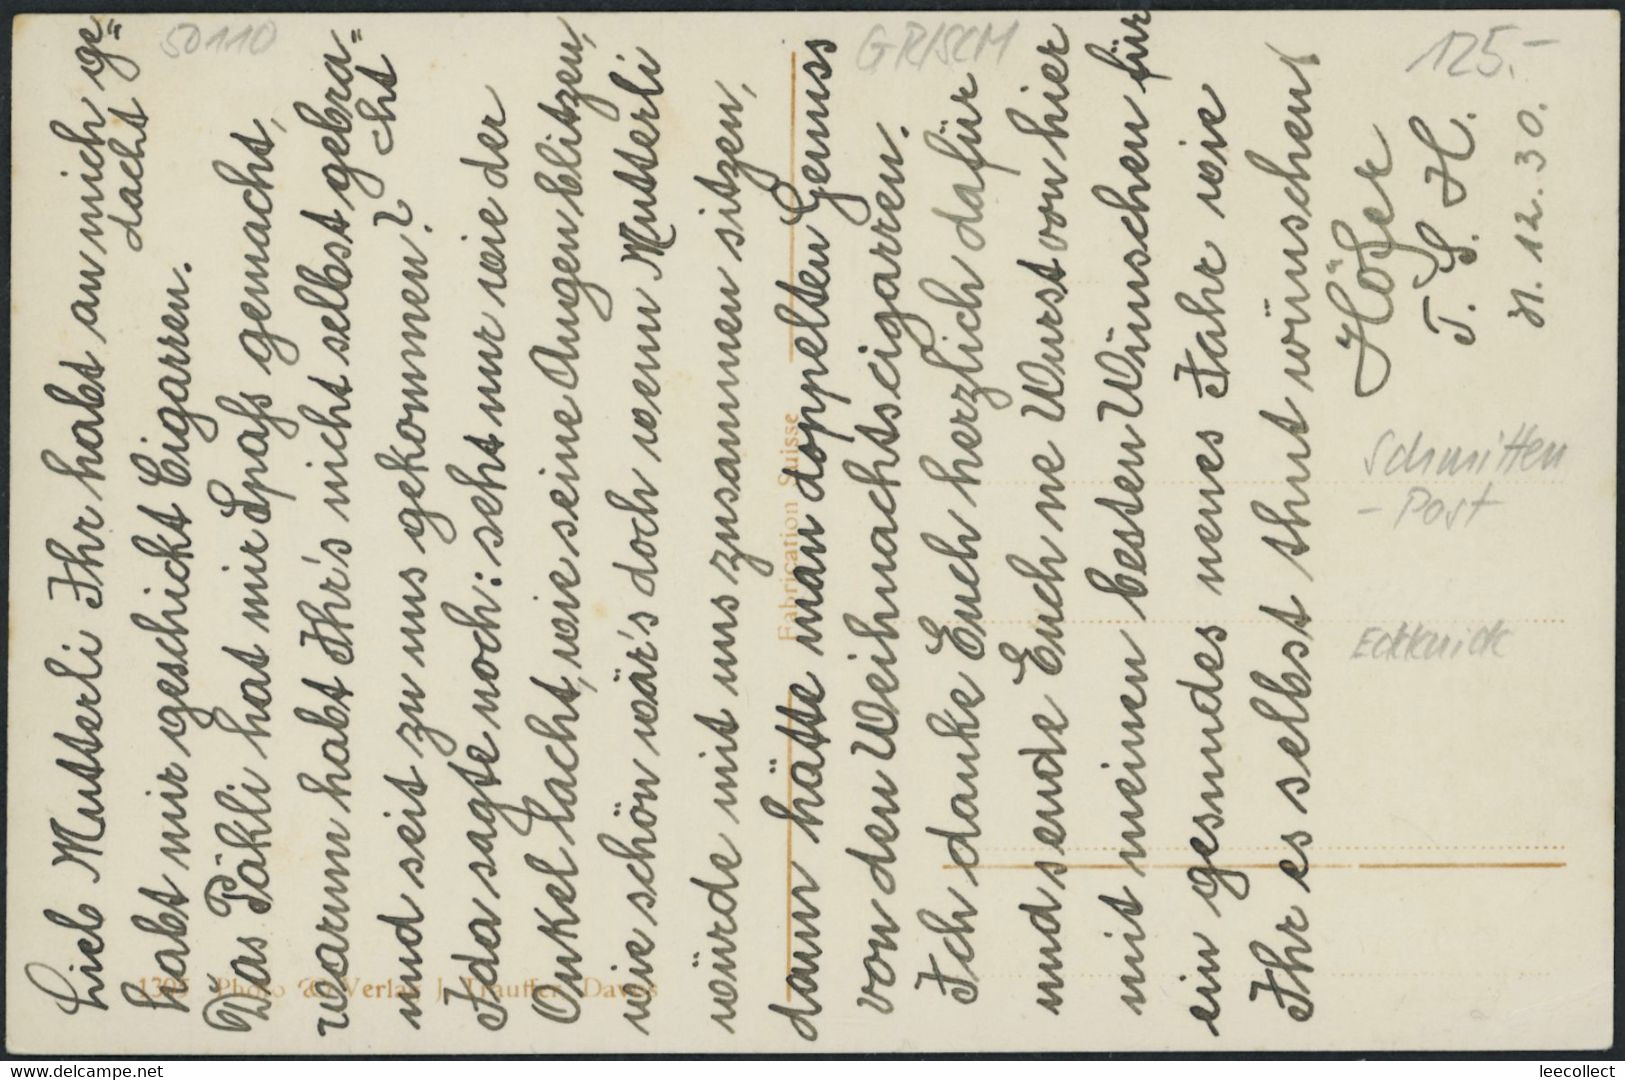 Lieb Mutterli Ihr habt an mich ge=
dacht
habt mir geschickt Cigarren.
Das Päkli hat mir Spass gemacht,
warum habt Ihr's nicht selbst gebra=
cht
und seit zu uns gekommen?
Ida sagte noch: seht nur wie der
Onkel lacht, wie seine Augen blitzen,
wie schön wär's doch wenn Mutterli
würde mit uns zusammen sitzen,
dann hätte man doppelten Genuss
von den Weihnachtscigarren.
Ich danke Euch herzlich dafür
und sende Euch ne Wurst von hier
mit meinen besten Wünschen für
ein gesundes neues Jahr wie
Ihr es selbst thut wünschen!
Höfer
T. S. H.
31. 12. 30.
50110
GRISCH
125.-
Schmitten
- Post
Eckknick
Fabrication Suisse
1305 Photo & Verlag J. Trauffer, Davos
www.delcampe.net
leecollect